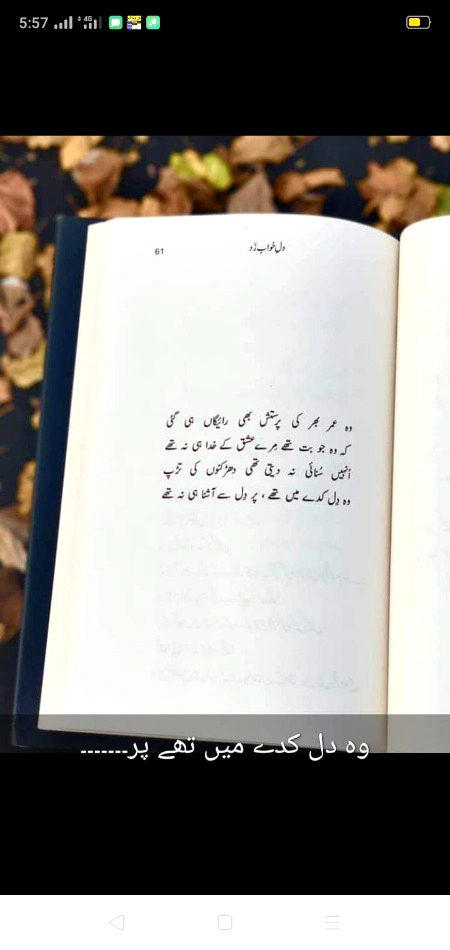 5:57
4G
61
دلِ خواب زَد
وہ عمر بھر کی پرستش بھی رائیگاں ہی گئی
کہ وہ جو بت تھے مِرے عشق کے خدا ہی نہ تھے
اُنہیں سُنائی نہ دیتی تھی دھڑکنوں کی تڑپ
وہ دِل کدے میں تھے ، پر دِل سے آشنا ہی نہ تھے
وہ دل کدے میں تھے پر-------